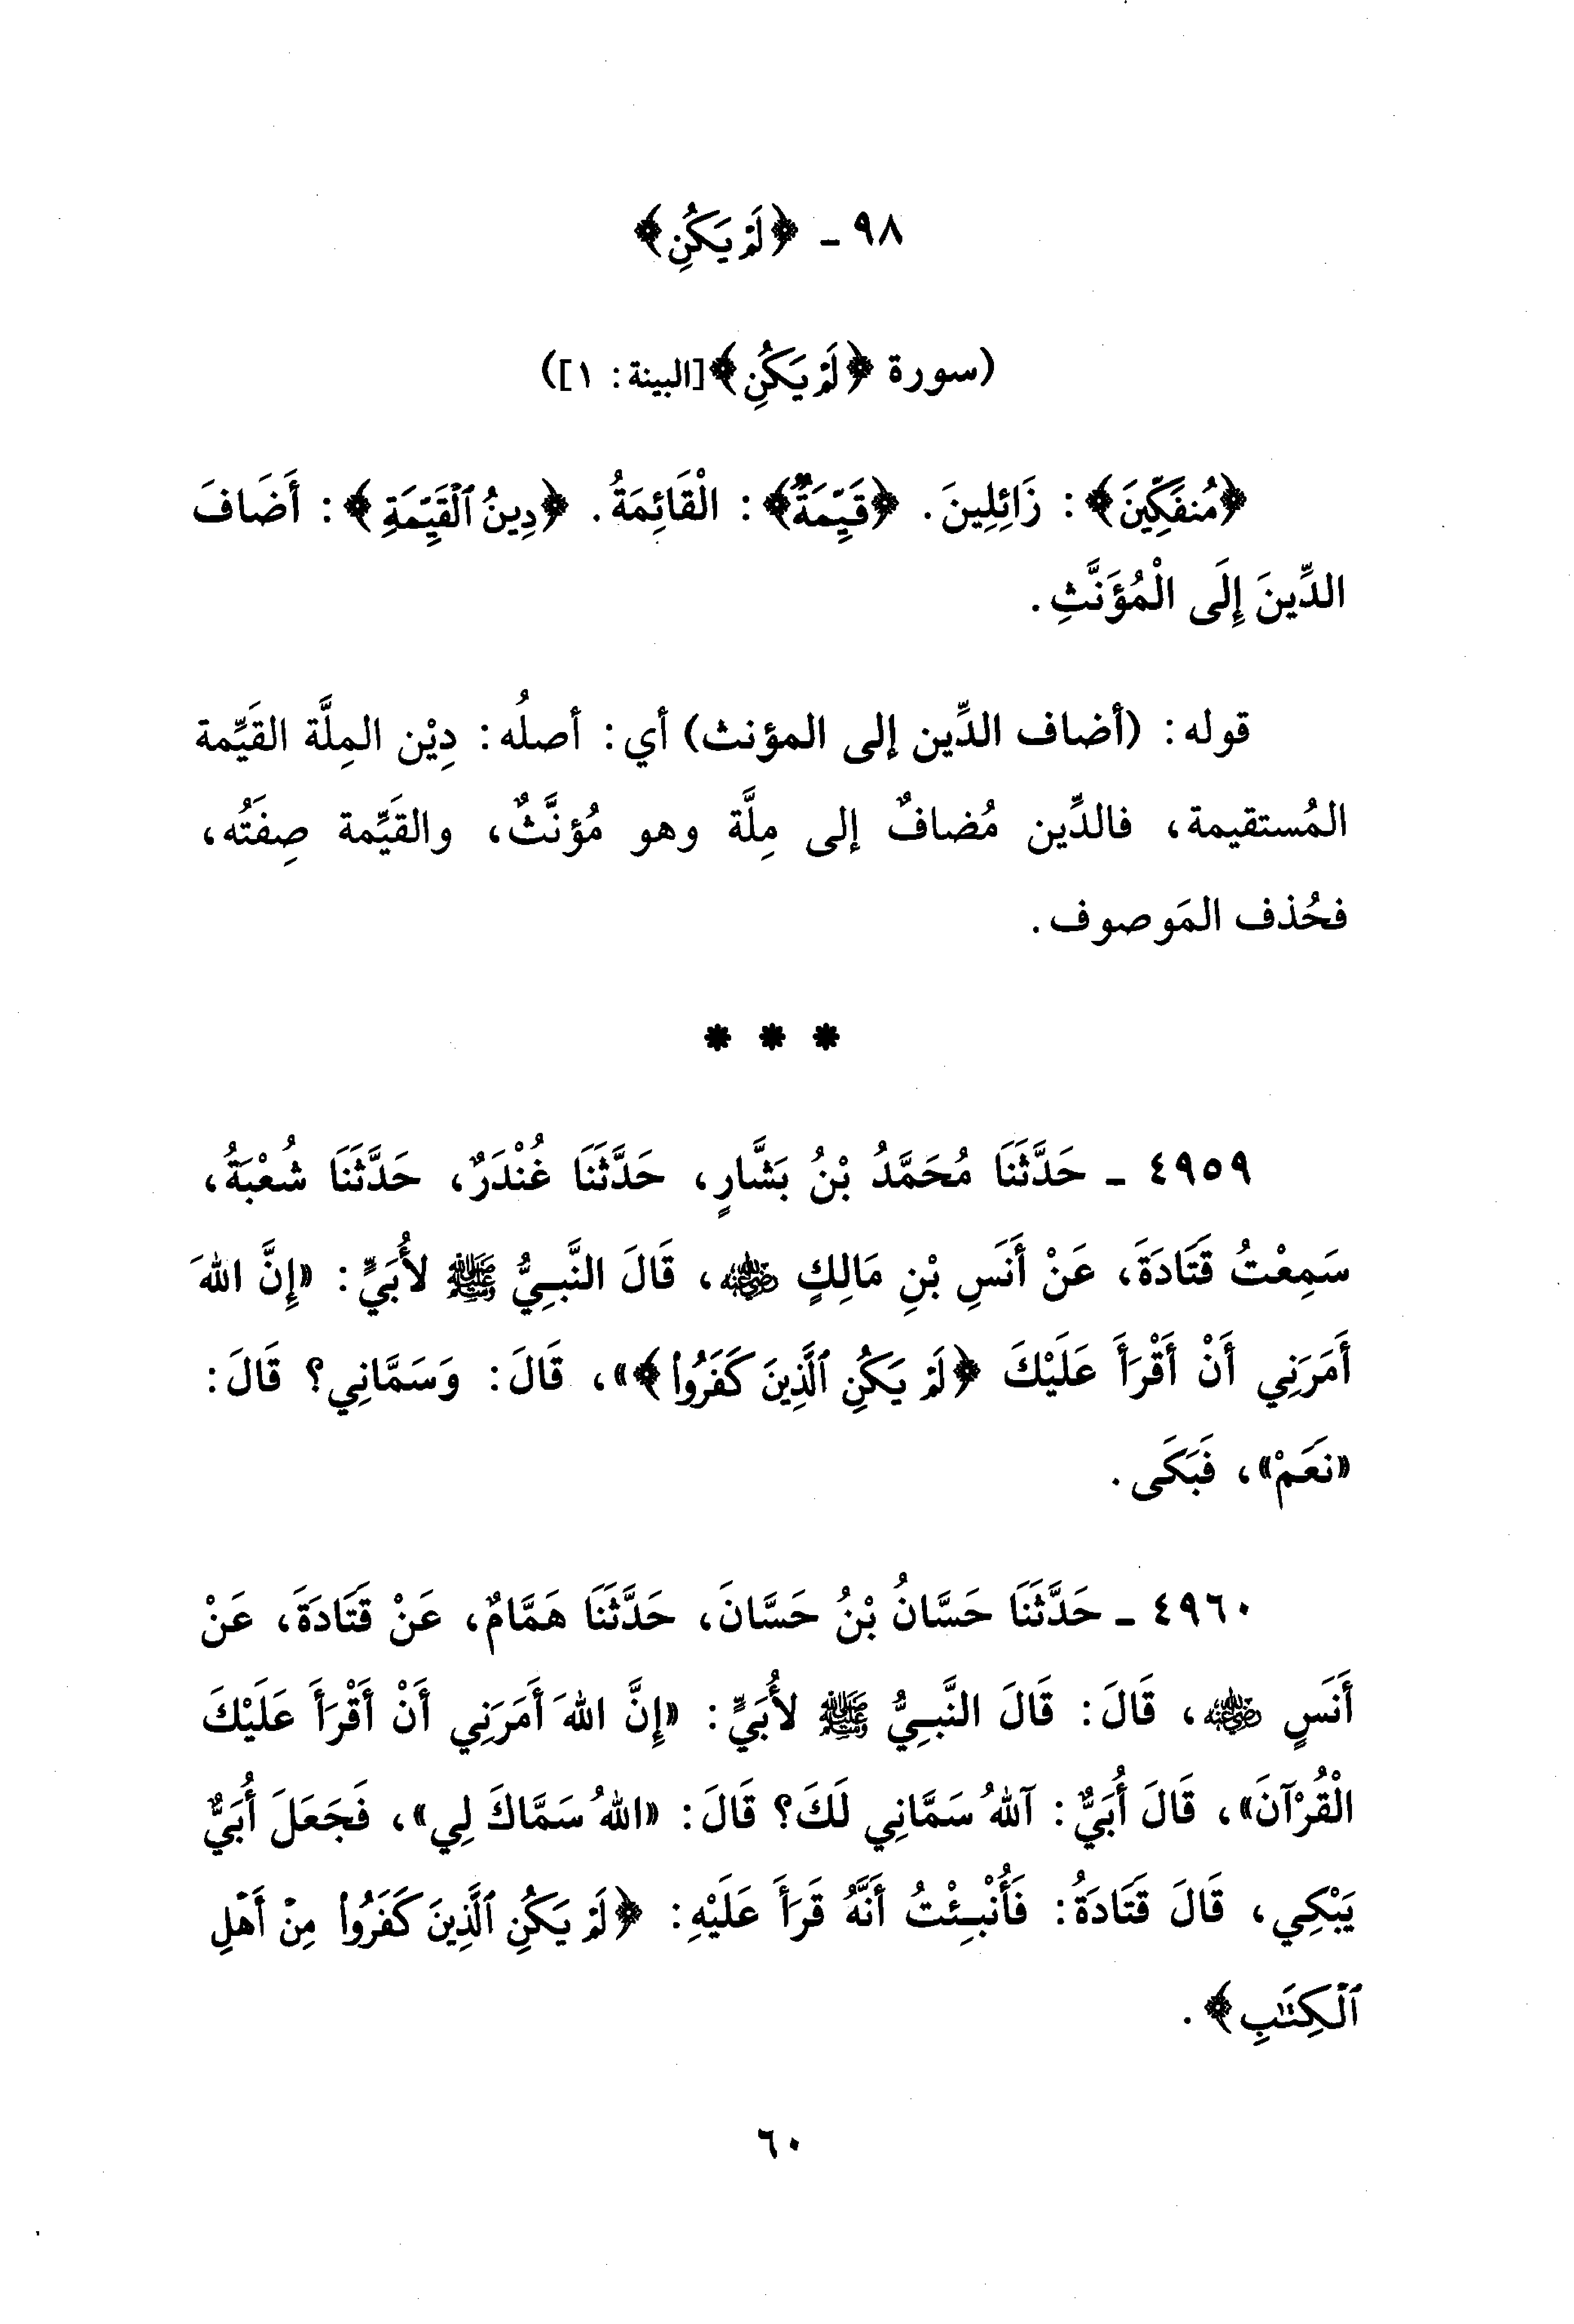 ٩٨ - ﴿لَمْ يَكُنِ﴾
(سورة ﴿لَمْ يَكُنِ﴾ [البينة: ١])
﴿مُنفَكِّينَ﴾: زَائِلِينَ. ﴿قَيِّمَةٌ﴾: الْقَائِمَةُ. ﴿دِينُ ٱلْقَيِّمَةِ﴾: أَضَافَ
الدِّينَ إِلَى الْمُؤَنَّثِ.
قوله: (أضاف الدِّين إلى المؤنث) أي: أصلُه: دِيْن المِلَّة القيِّمة
المُستقيمة، فالدِّين مُضافٌ إلى مِلَّة وهو مُؤنَّثٌ، والقيِّمة صِفَتُه،
فحُذف المَوصوف.
* * *
٤٩٥٩ - حَدَّثَنَا مُحَمَّدُ بْنُ بَشَّارٍ، حَدَّثَنَا غُنْدَرٌ، حَدَّثَنَا شُعْبَةُ،
سَمِعْتُ قَتَادَةَ، عَنْ أَنَسِ بْنِ مَالِكٍ رضي الله عنه، قَالَ النَّبِيُّ ﷺ لأُبَيٍّ: «إِنَّ اللهَ
أَمَرَنِي أَنْ أَقْرَأَ عَلَيْكَ ﴿لَمْ يَكُنِ ٱلَّذِينَ كَفَرُوا۟﴾»، قَالَ: وَسَمَّانِي؟ قَالَ:
«نَعَمْ»، فَبَكَى.
٤٩٦٠ - حَدَّثَنَا حَسَّانُ بْنُ حَسَّانَ، حَدَّثَنَا هَمَّامٌ، عَنْ قَتَادَةَ، عَنْ
أَنَسٍ رضي الله عنه، قَالَ: قَالَ النَّبِيُّ ﷺ لأُبَيٍّ: «إِنَّ اللهَ أَمَرَنِي أَنْ أَقْرَأَ عَلَيْكَ
الْقُرْآنَ»، قَالَ أُبَيٌّ: آللهُ سَمَّانِي لَكَ؟ قَالَ: «اللهُ سَمَّاكَ لِي»، فَجَعَلَ أُبَيٌّ
يَبْكِي، قَالَ قَتَادَةُ: فَأُنْبِئْتُ أَنَّهُ قَرَأَ عَلَيْهِ: ﴿لَمْ يَكُنِ ٱلَّذِينَ كَفَرُوا۟ مِنْ أَهْلِ
ٱلْكِتَٰبِ﴾.
٦٠